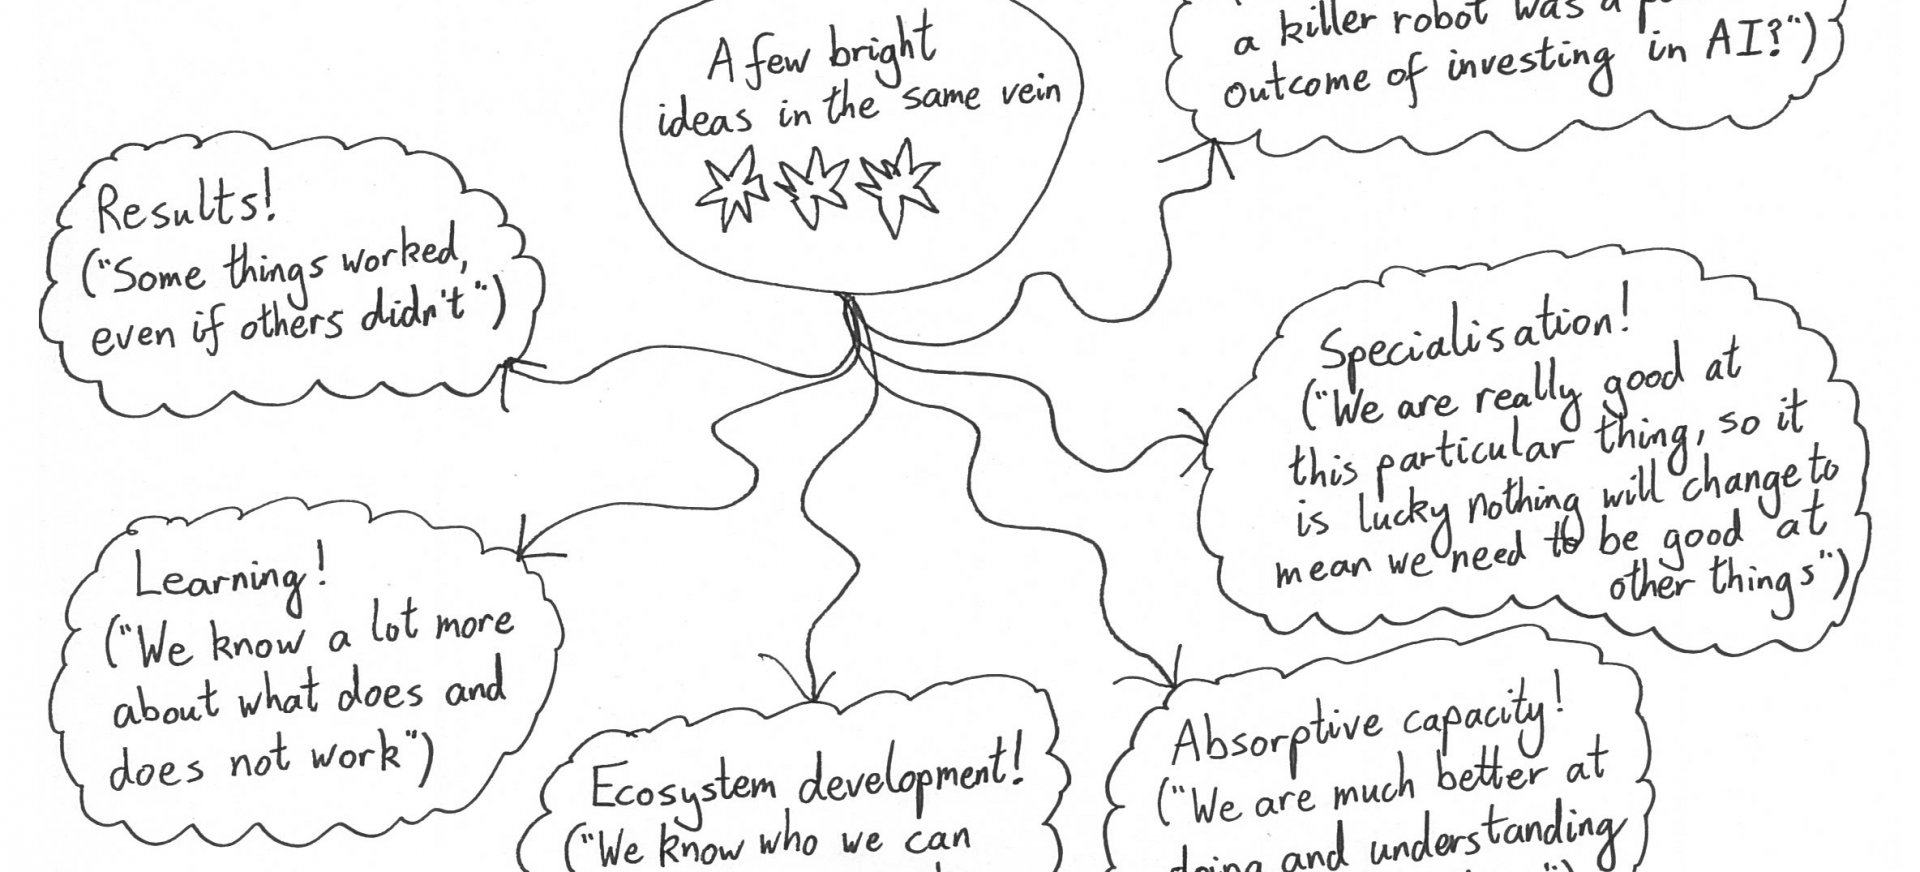 A few bright
ideas in the same vein
a killer robot was a
outcome of investing in AI?")
Results!
("Some things worked,
even if others didn't")
Specialisation!
("We are really good at
this particular thing, so it
is lucky nothing will change to
mean we need to be good at
other things")
Learning!
("We know a lot more
about what does and
does not work")
Ecosystem development!
("We know who we can
Absorptive capacity!
("We are much better at
doing and understanding